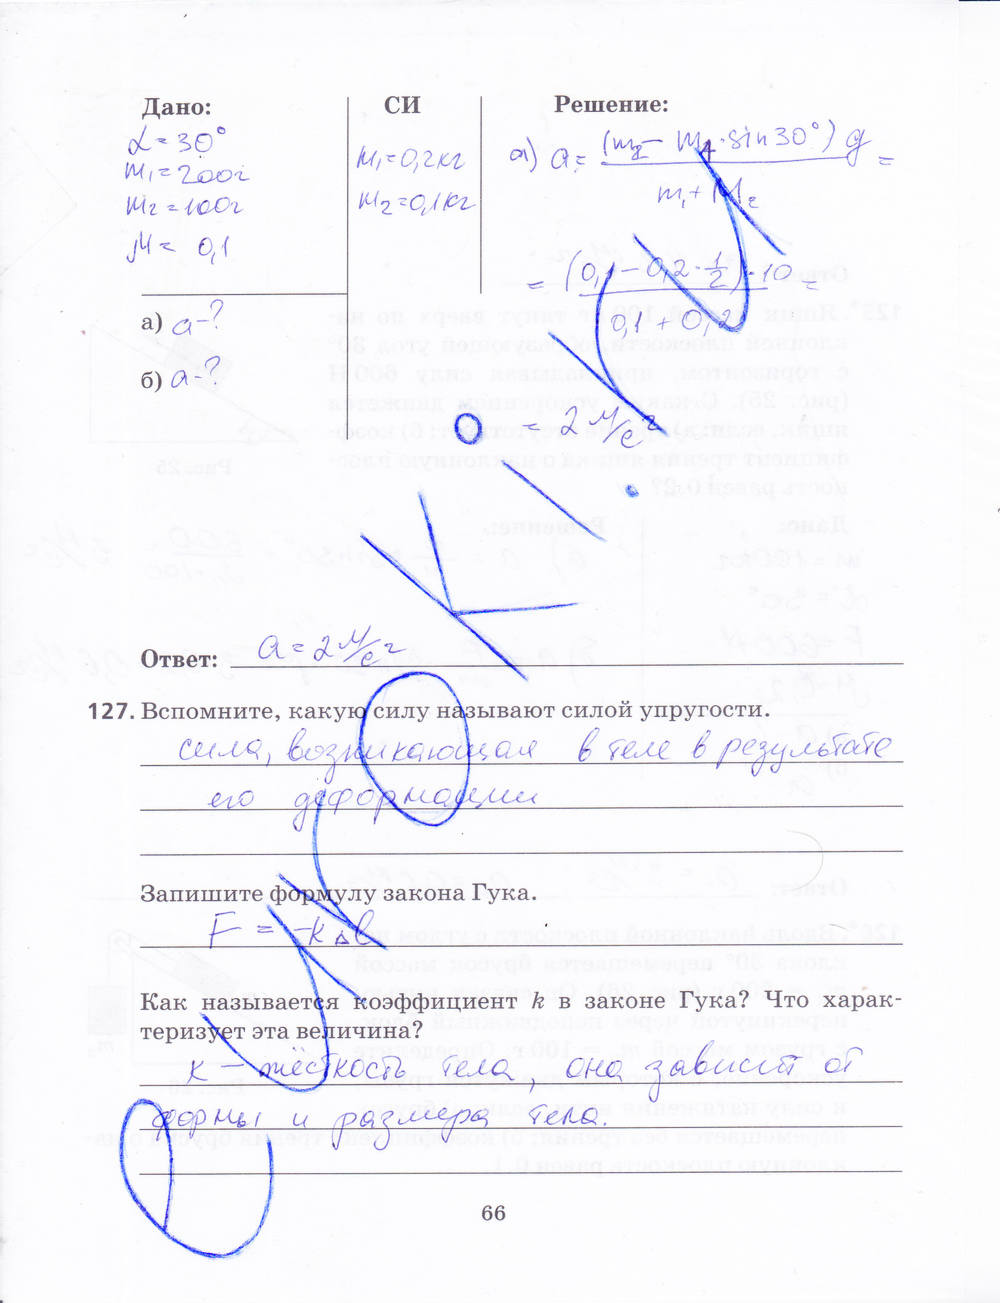 Дано:
СИ
Решение:
α = 30°
m₁ = 200г
m₂ = 100г
μ = 0,1
m₁ = 0,2кг
m₂ = 0,1кг
а) a = (m₂ − m₁·sin30°) g / m₁ + m₂ =
= (0,1 − 0,2 · 1/2) · 10 / 0,1 + 0,2 =
= 2 м/с²
а) a - ?
б) a - ?
Ответ: a = 2 м/с²
127. Вспомните, какую силу называют силой упругости.
сила, возникающая в теле в результате
его деформации
Запишите формулу закона Гука.
F = -kΔl
Как называется коэффициент k в законе Гука? Что харак-
теризует эта величина?
к – жёсткость тела, она зависит от
формы и размера тела.
66